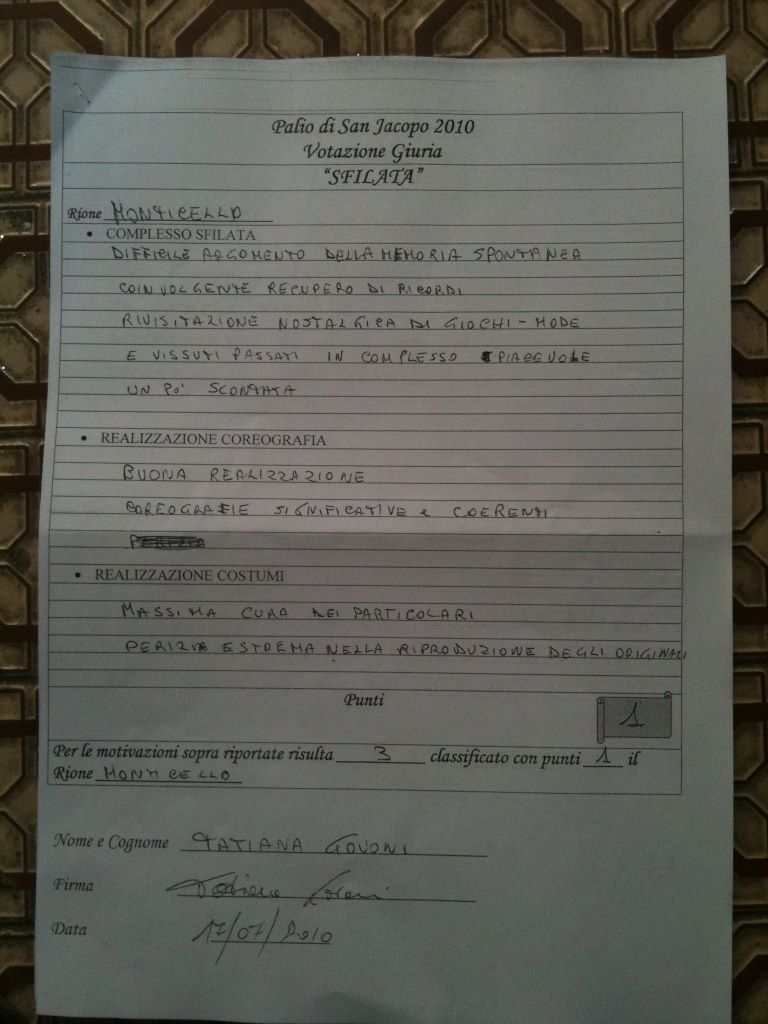 Palio di San Jacopo 2010
Votazione Giuria
"SFILATA"
Rione MONTICELLO
• COMPLESSO SFILATA
DIFFICILE ARGOMENTO DELLA MEMORIA SPONTANEA
COINVOLGENTE RECUPERO DI RICORDI
RIVISITAZIONE NOSTALGICA DI GIOCHI - MODE
E VISSUTI PASSATI IN COMPLESSO PIACEVOLE
UN PO' SCONTATA
• REALIZZAZIONE COREOGRAFIA
BUONA REALIZZAZIONE
COREOGRAFIE SIGNIFICATIVE e COERENTI
• REALIZZAZIONE COSTUMI
MASSIMA CURA DEI PARTICOLARI
PERIZIA ESTREMA NELLA RIPRODUZIONE DEGLI ORIGINALI
Punti
1
Per le motivazioni sopra riportate risulta 3 classificato con punti 1 il
Rione MONTICELLO
Nome e Cognome TATIANA GOVONI
Firma Tatiana Govoni
Data 17/07/2010